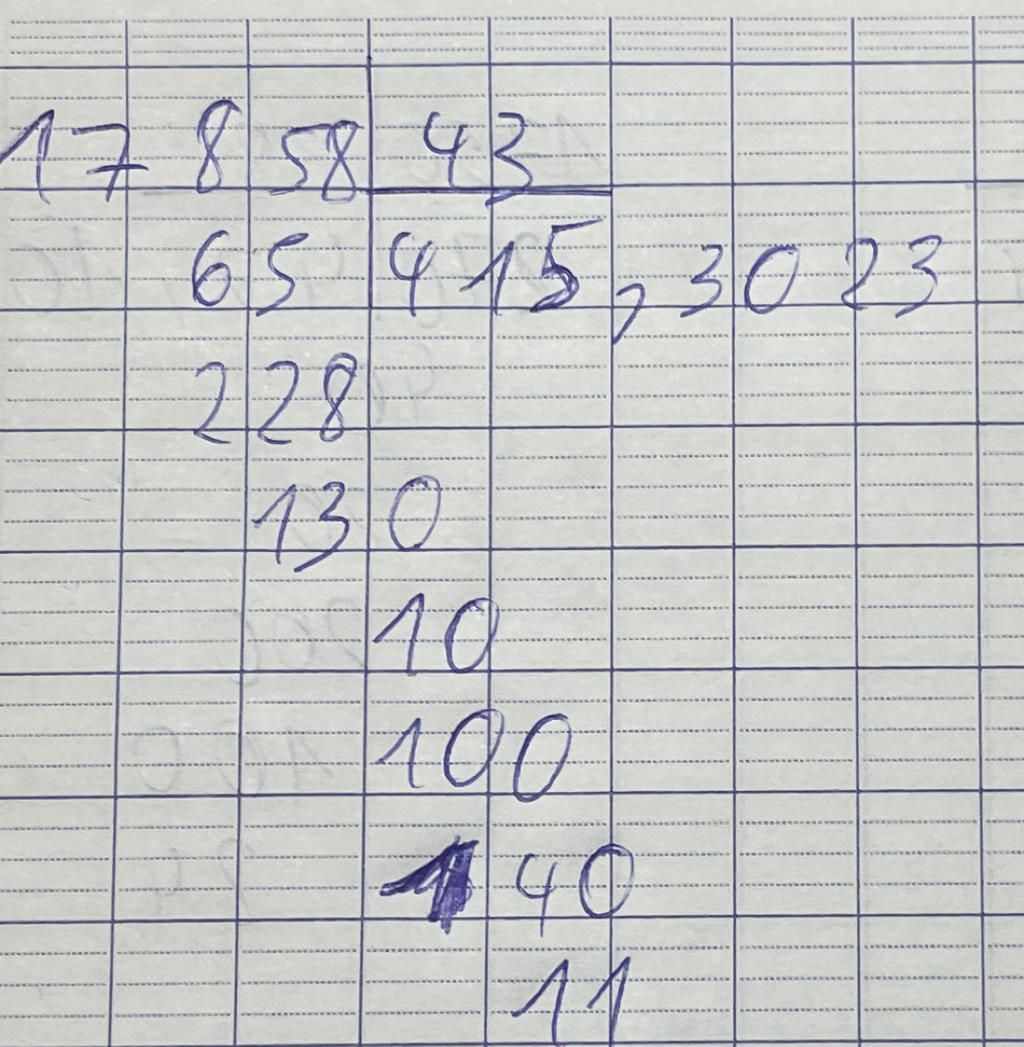 17 858 43
65 415,3023
228
130
10
100
140
11